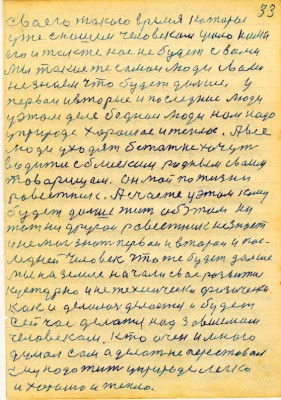 33
своего такого время которое
уже с нашем человеком ушло нами
его и также нас не будет с вами
Мы такие же самои люди вами
не знаем что будет дальше. у
первои и вторые и последние люди
у этом деле бедное люди нам надо
у природе хорошое и теплое. А все
люди уходят остат не хочут
водится с близким родным своим
товарищем. Он мой по жизни
ровестник. А счасте у этом кому
будет дальше жит об этом ни
тот ни другои ровестник не знает
и не мог знат первои и второи и пос-
леднеи человек что же будет дальше
мы на земле начали свое развитие
културно и не технически физически
как и делалос делается и будет
сеичас делатся над зависимом
человеком. Кто очен и много
думал сам а делат не перестовал
ему надо жит у природе легко
и хорошо и тепло.